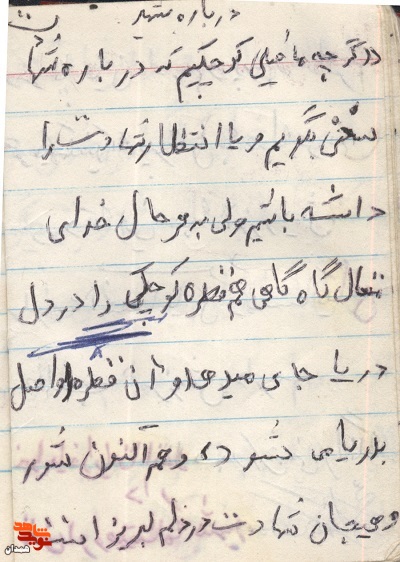 درباره شهید
درگرچه ما خیلی کوچکیم که در باره شهدا
سخن بگویم و یا انتظار شهادت را
داشته باشیم ولی به هر حال خدای
متعال گاه گاهی هم قطره کوچکی را در دل
دریا جای میدهد و آن قطره واصل
بدریا می شود و هم اکنون شور
و هیجان شهادت در دلم لبریز است